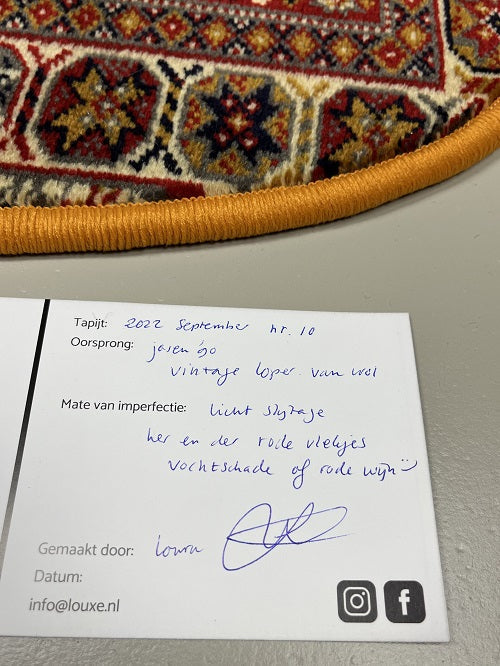 Tapijt: 2022 September nr. 10
Oorsprong: jaren '90
vintage loper. van wol
Mate van imperfectie: licht slytage
her en der rode vlekjes
vochtschade of rode wijn
Gemaakt door: Laura
Datum:
info@louxe.nl